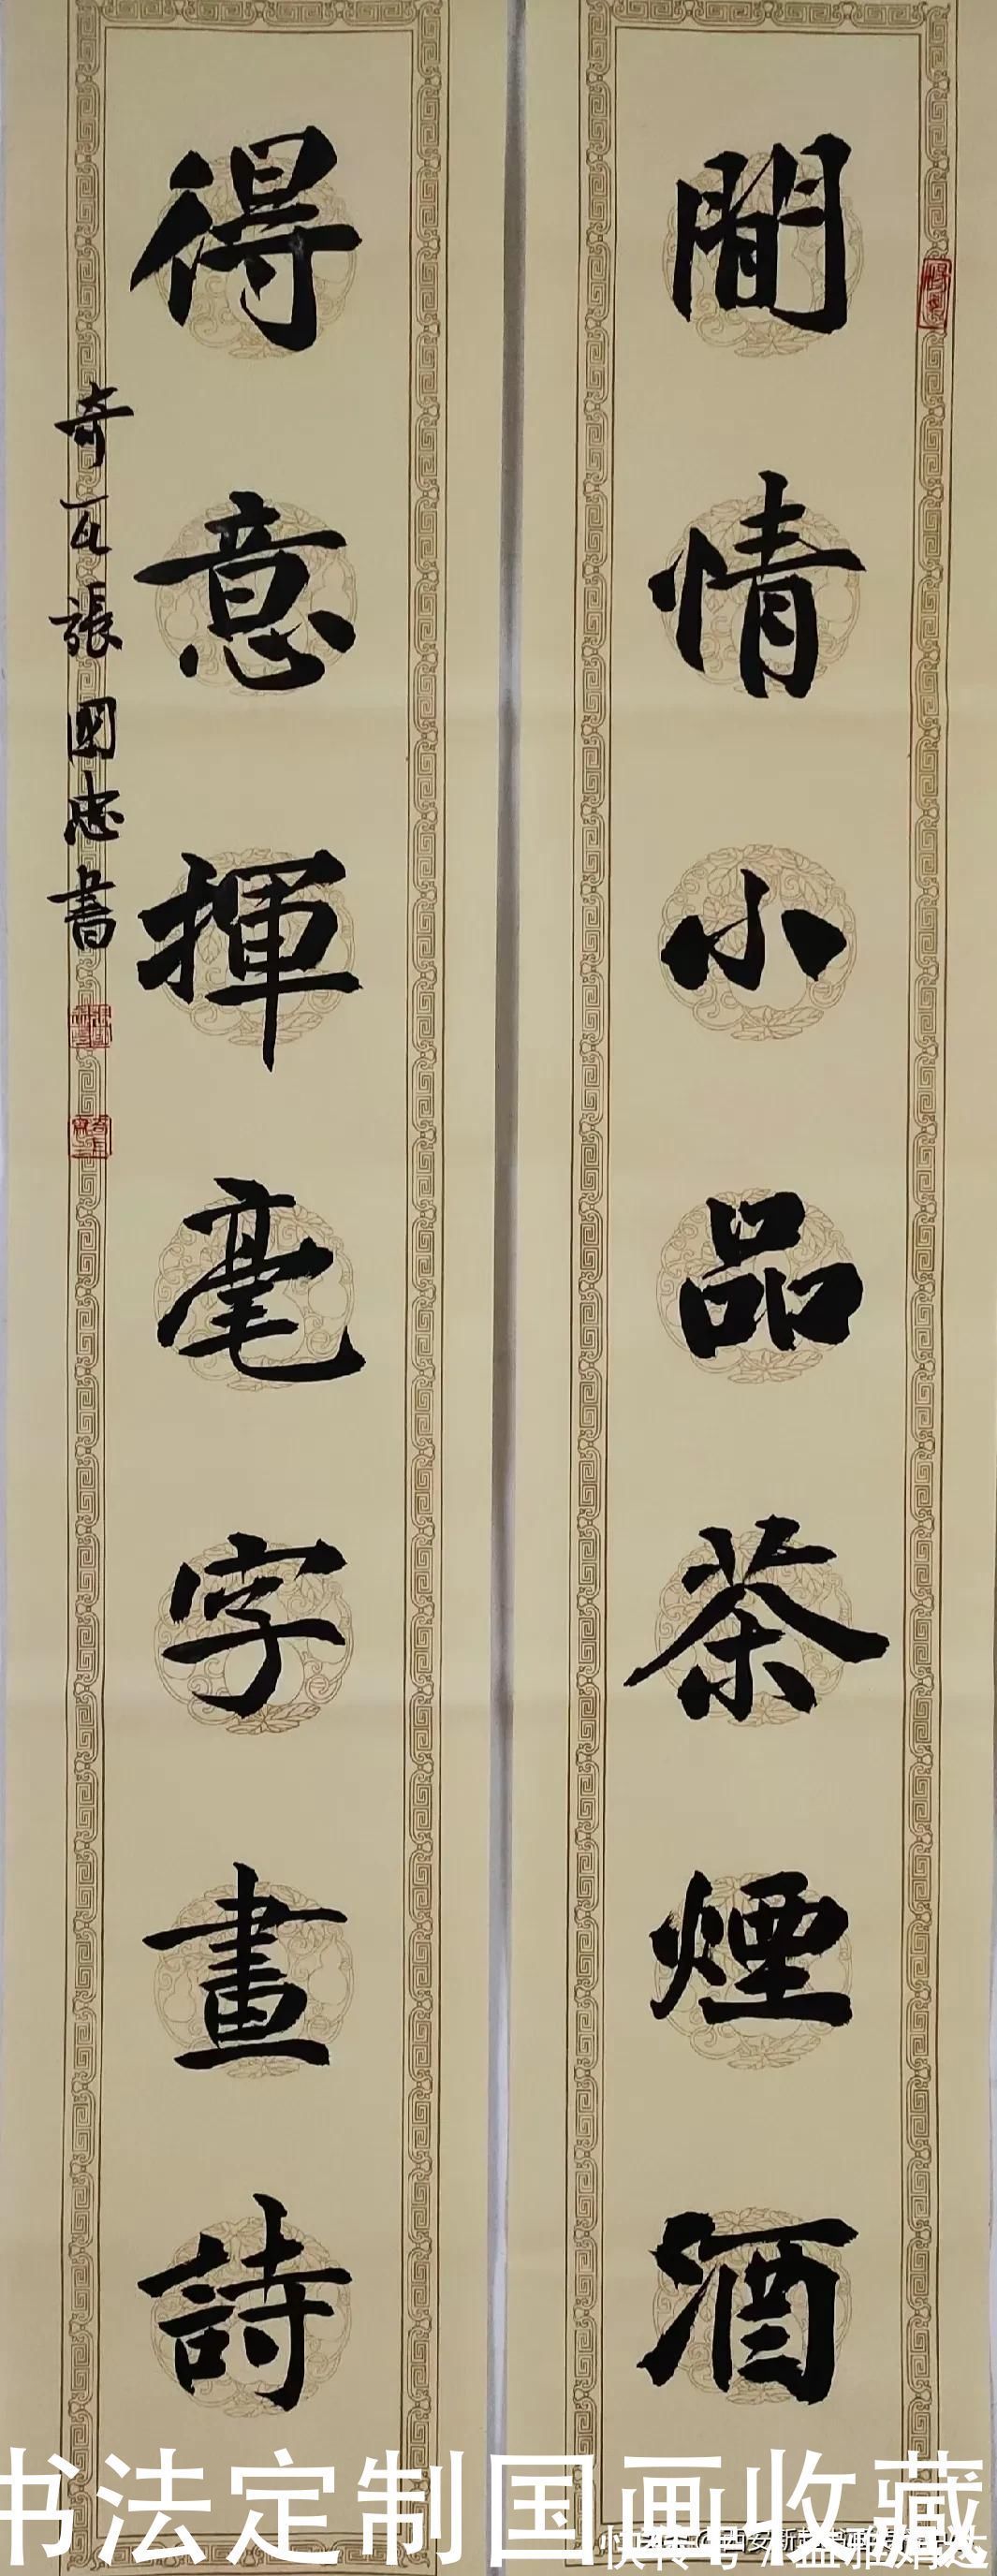 閒情小品茶煙酒
得意揮毫字畫詩
奇瓦張國忠書
书法定制国画收藏